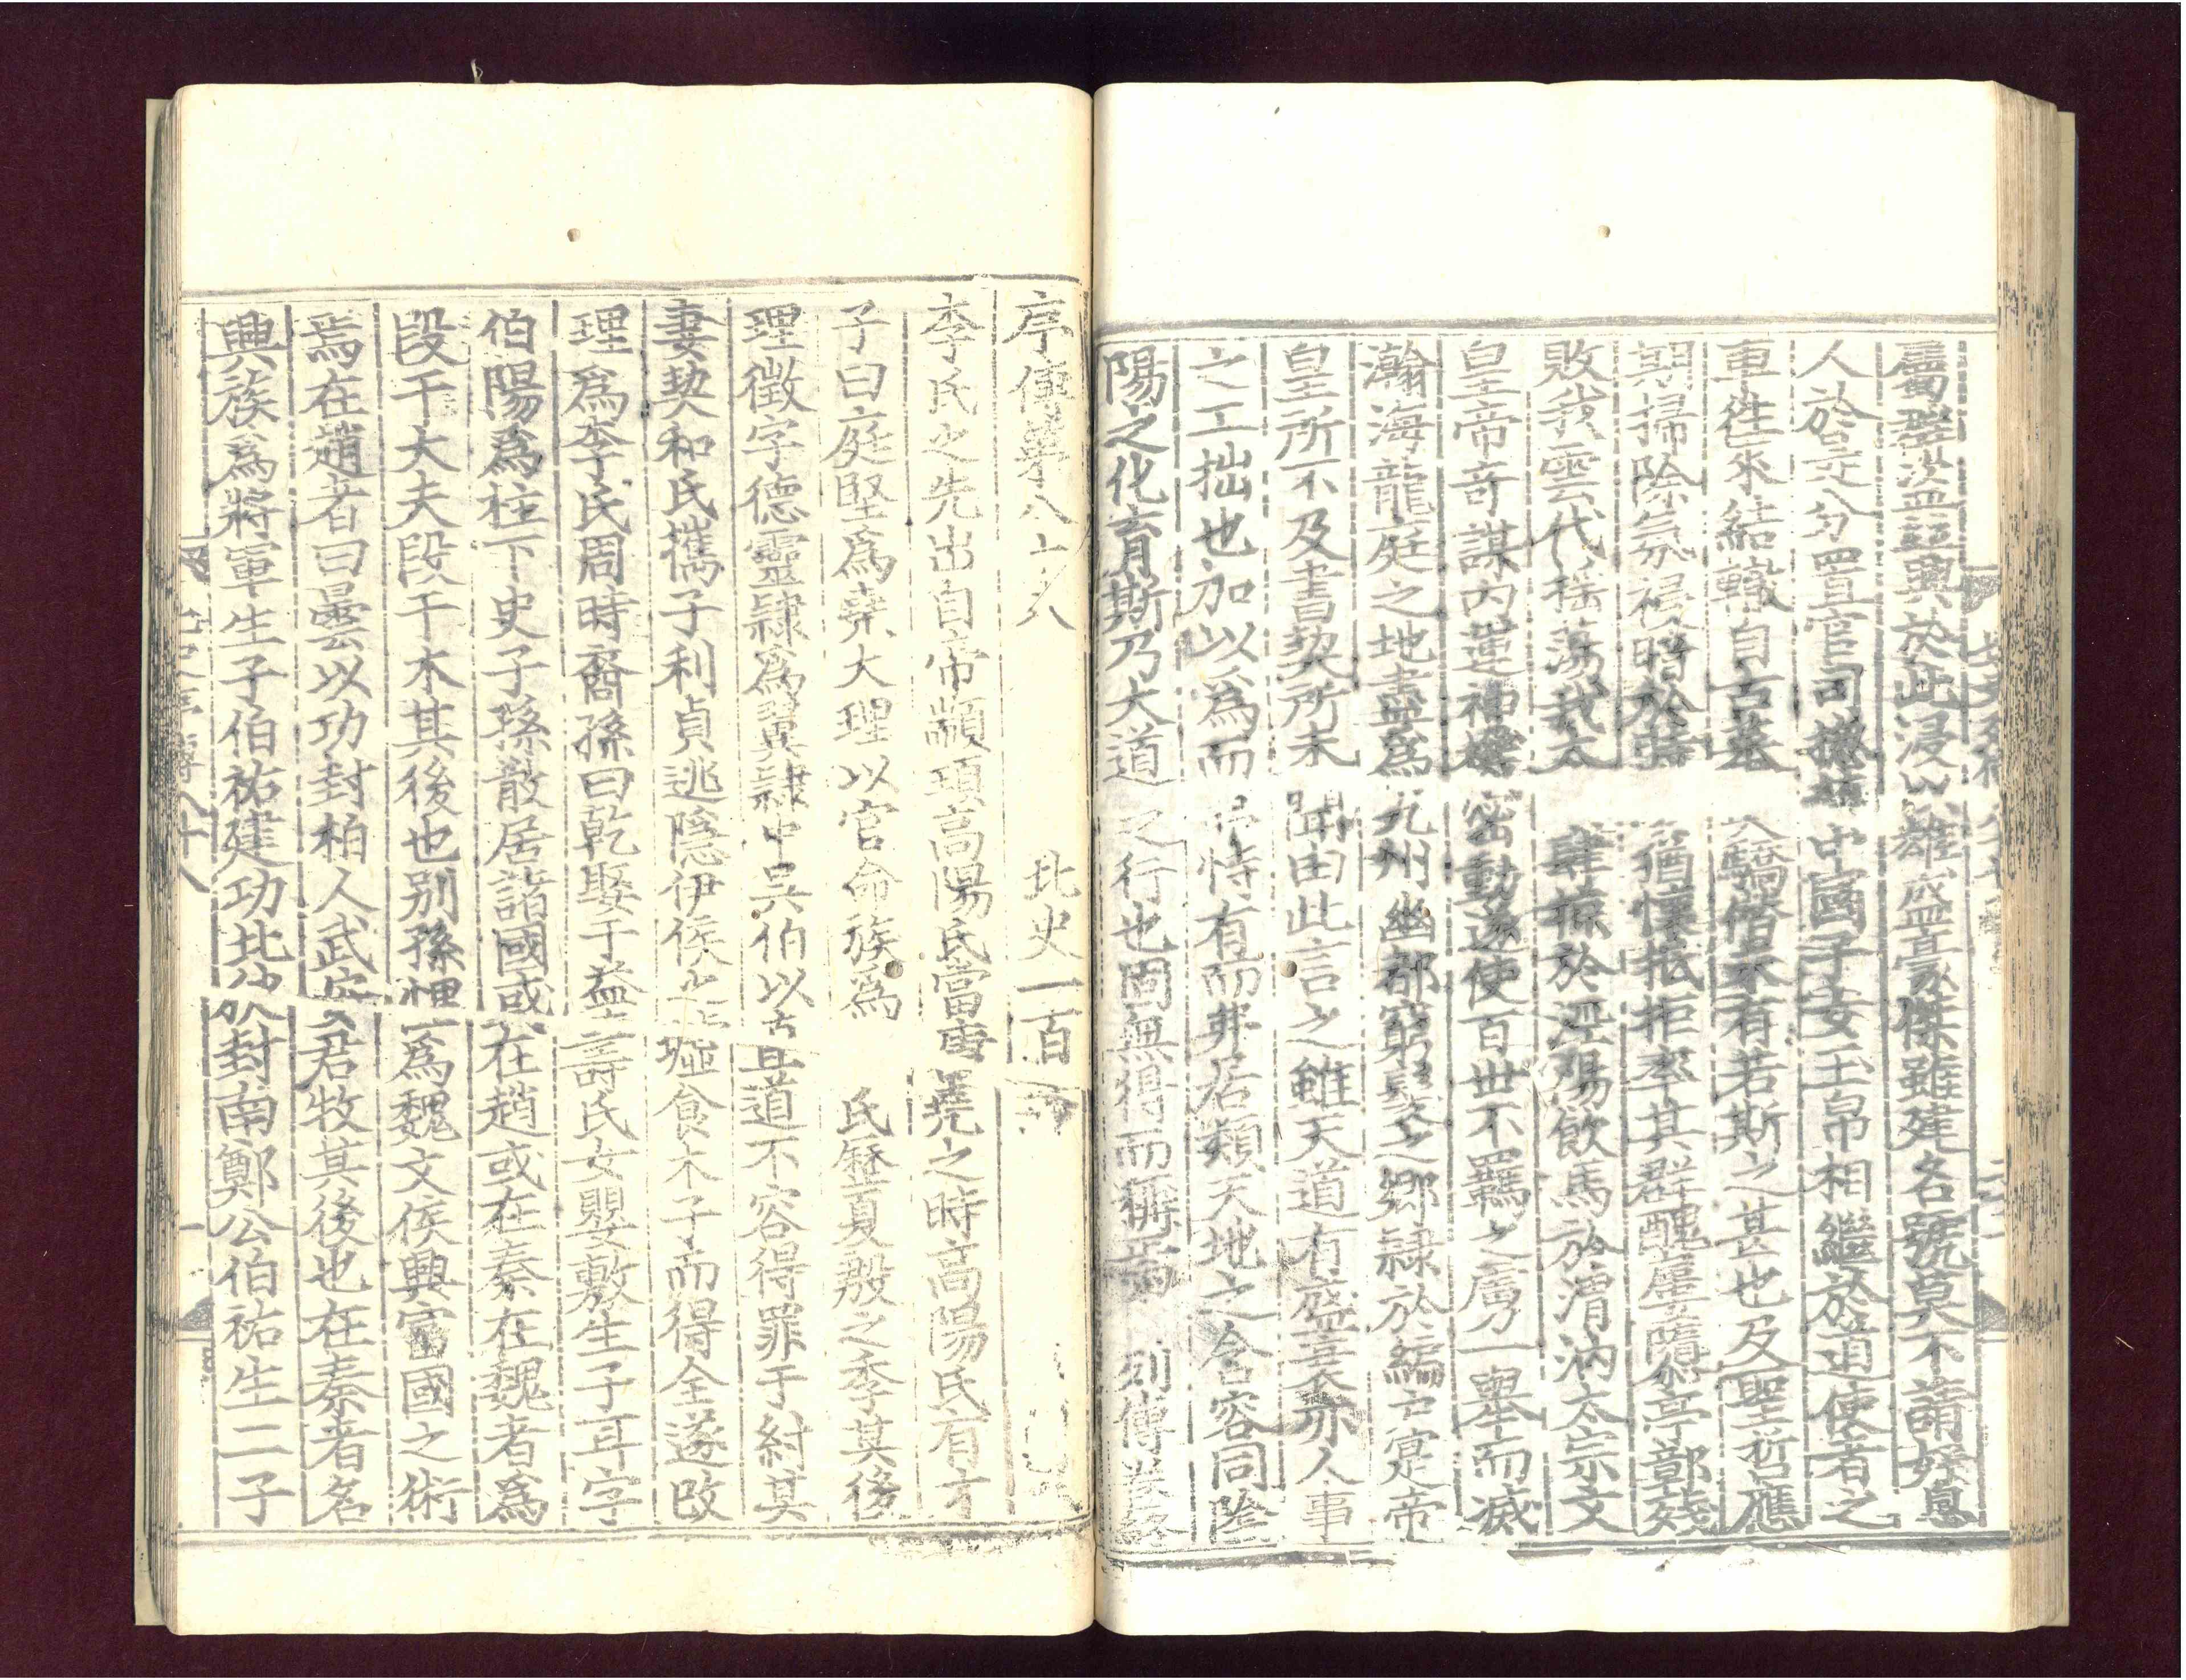 屬蠕蠕滋盛並興於此浸以雄盛豪傑雖建名號莫不請好息
人於是分置官司揔統中國子女玉帛相繼於道使者之
車往來結轍自古蕃夷驕僭未有若斯之甚也及聖哲應
期掃除氛祲暗於時變猶懷抵拒率其群醜屢隳亭鄣殘
敗我雲代搖蕩我太原肆掠於涇陽飲馬於渭汭太宗文
皇帝奇謀內運神機密動遂使百世不羈之虜一舉而滅
瀚海龍庭之地盡爲九州幽都窮髮之鄉隸於編戶寔帝
皇所不及書契所未聞由此言之雖天道有盛衰亦人事
之工拙也加以爲而弗恃有而弗居類天地之含容同陰
陽之化育斯乃大道之行也固無得而稱焉 列傳第
序傳第八十八 北史一百
李氏之先出自帝顓頊高陽氏當唐堯之時高陽氏有才
子曰庭堅爲堯大理以官命族爲理氏歷夏殷之季其後
理徵字德靈隸爲翼隸中吳伯以直道不容得罪于紂其
妻契和氏攜子利貞逃隱伊侯之墟食木子而得全遂改
理爲李氏周時裔孫曰乾娶于益壽氏女嬰敷生子耳字
伯陽爲柱下史子孫散居諸國或在趙或在秦在魏者爲
段干大夫段干木其後也別孫悝爲魏文侯興富國之術
焉在趙者曰曇以功封柏人武安君牧其後也在秦者名
興族爲將軍生子伯祐建功北狄封南鄭公伯祐生二子
北史序傳八十八